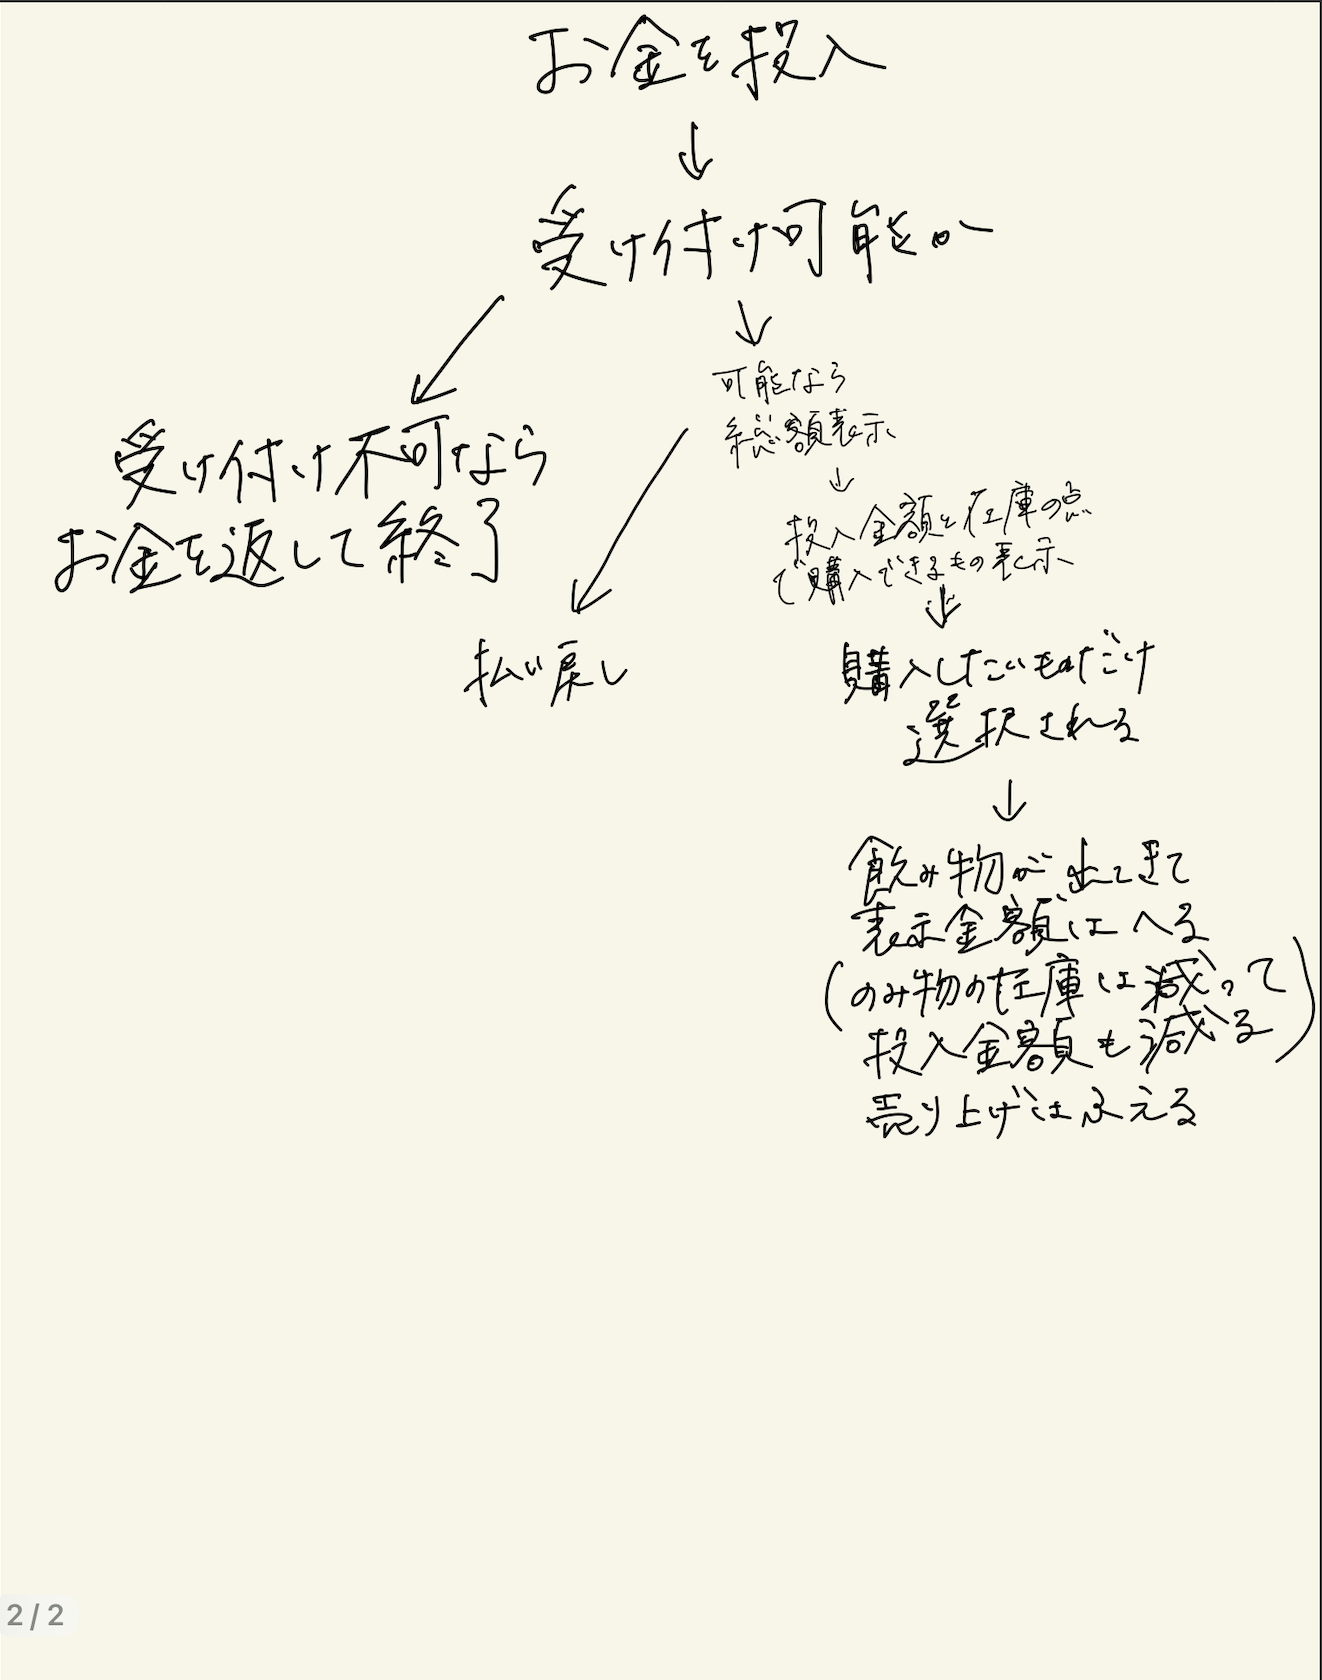 お金を投入
↓
受け付け可能か
受け付け不可なら
お金を返して終了
可能なら
総額表示
払い戻し
投入金額と在庫の点
で購入できるもの表示
購入したいものだけ
選択される
↓
飲み物が出てきて
表示金額はへる
(のみ物の在庫は減って
投入金額も減る)
売り上げはふえる
2/2